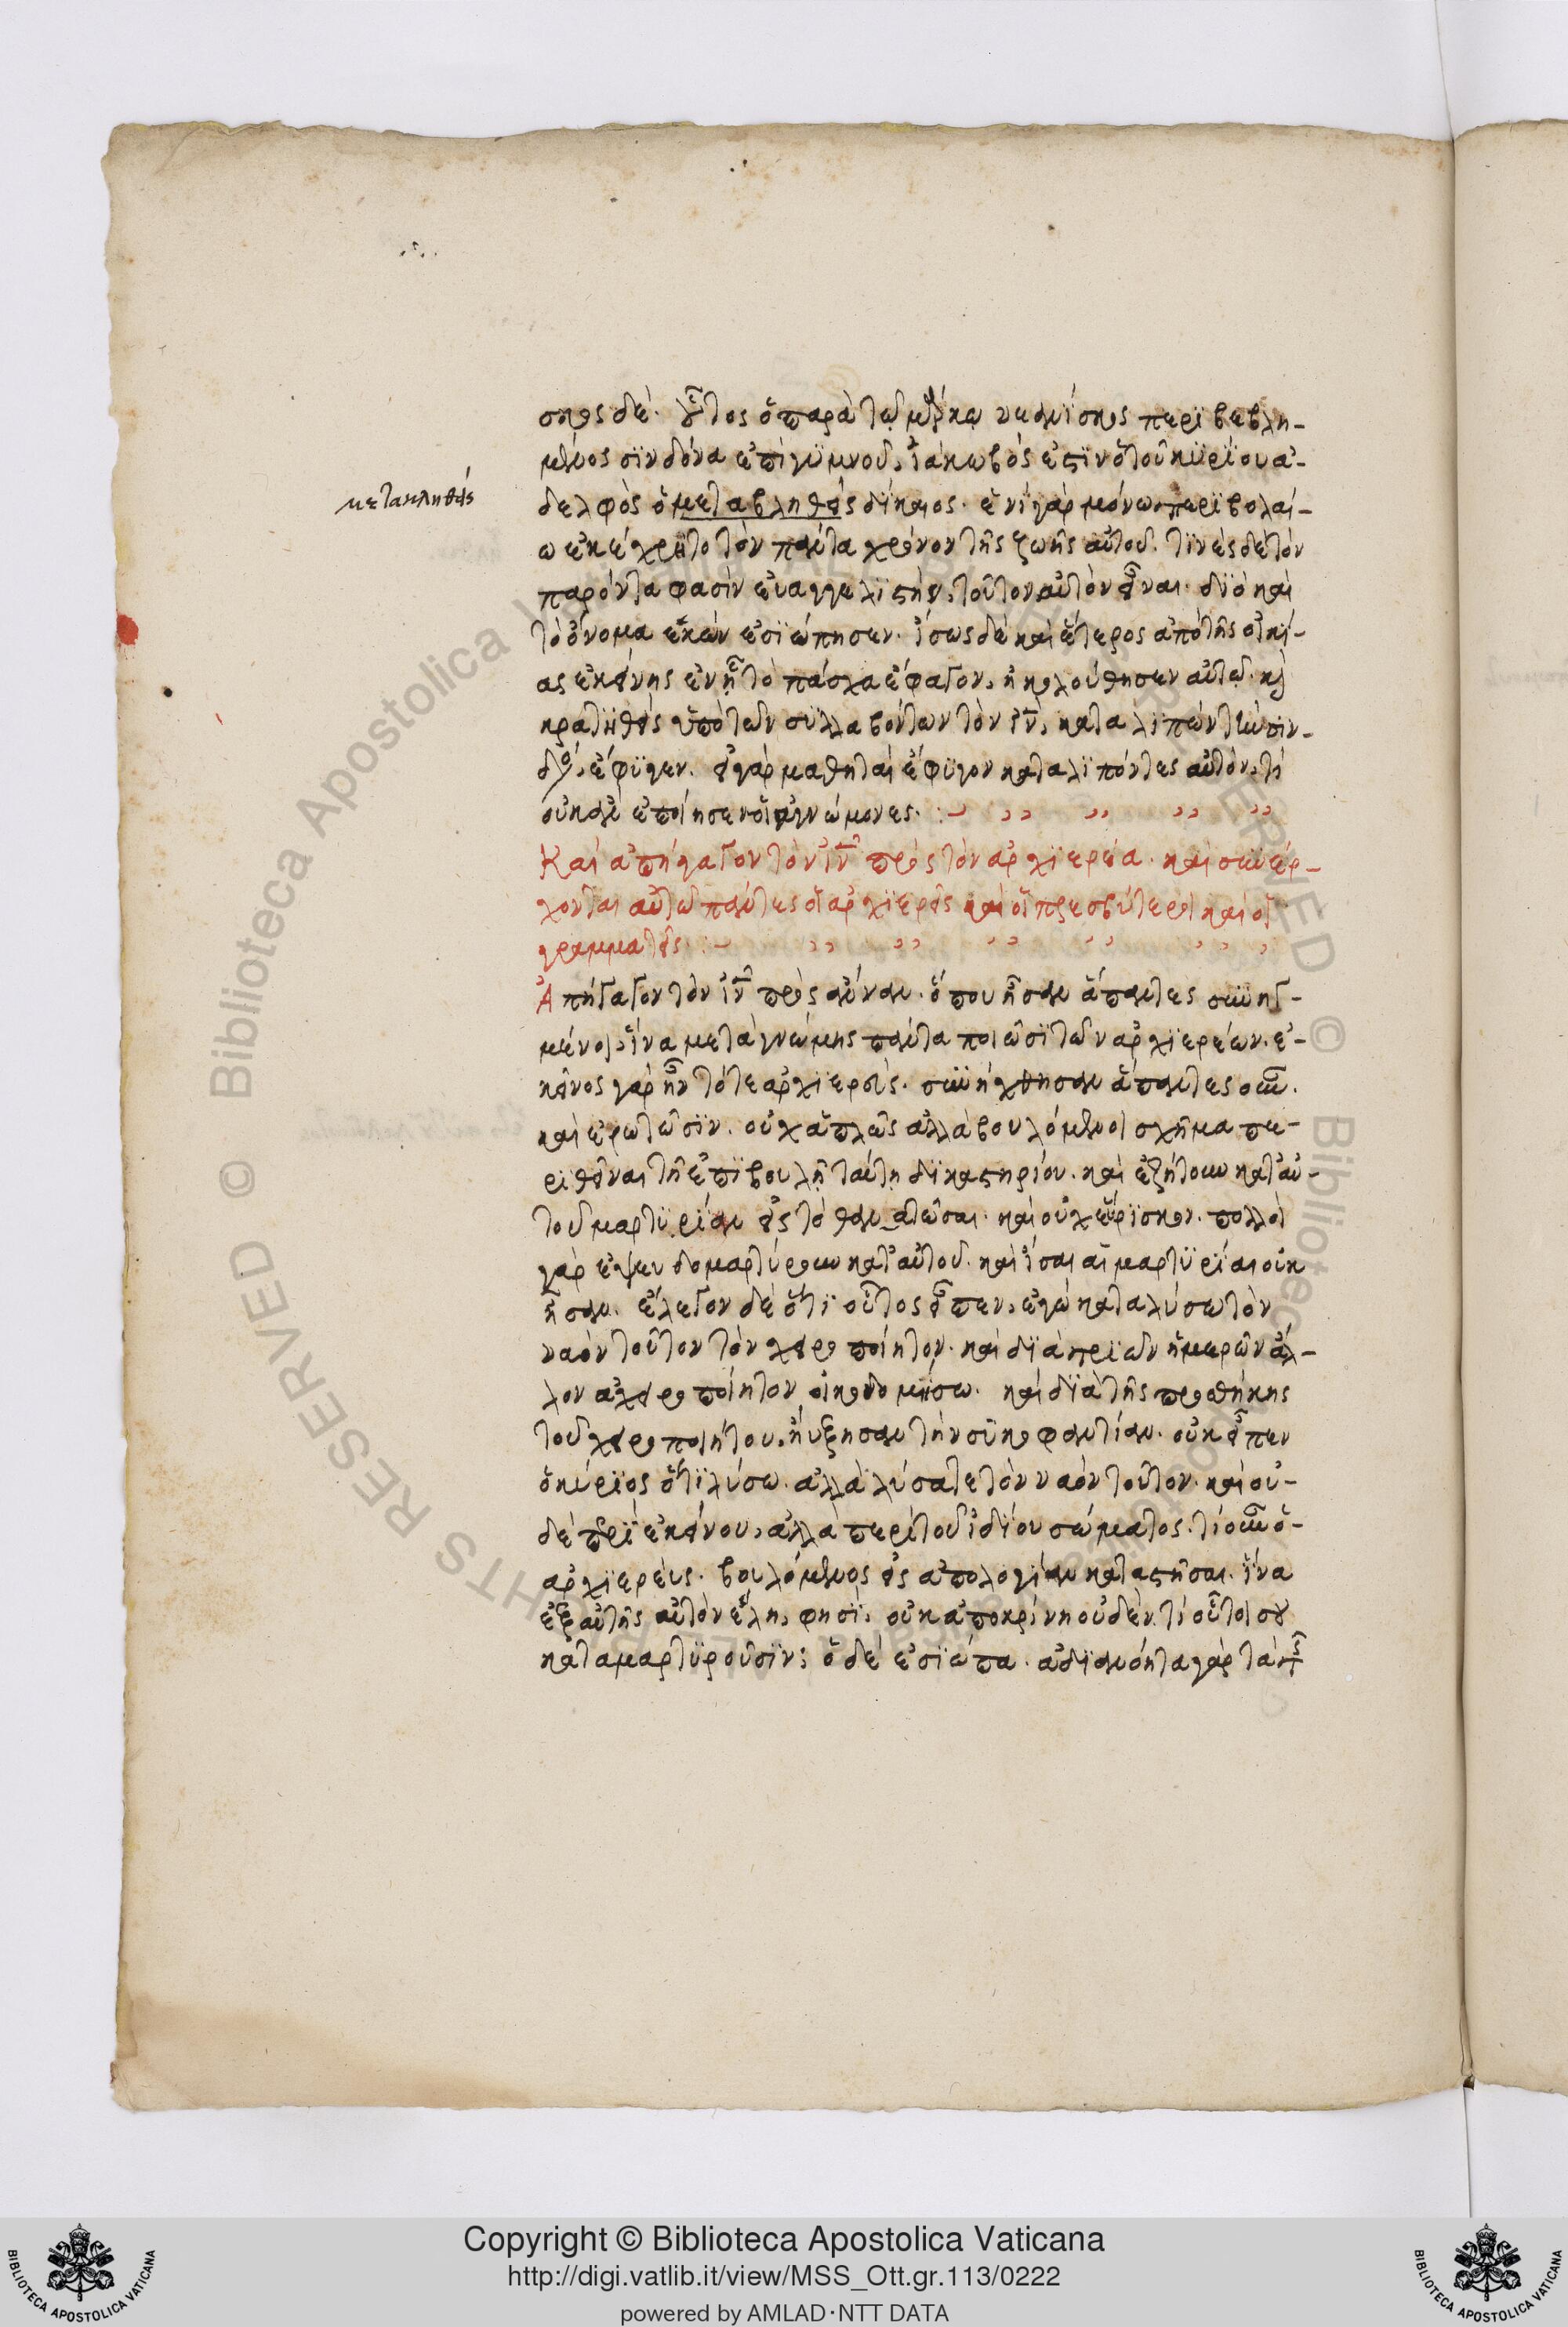 σκος δέ. οὗτος ὁ παρὰ τῷ μάρκῳ νεανίσκος περϊβεβλη-
μένος σϊνδόνα ἐπὶ γϋμνοῦ, ἰάκωβός ἐστϊν ὁ τοῦ κϋρίου ἀ-
μετακληθείς
δελφὸς ὁ μεταβληθεὶς δίκαιος. ἑνὶ γὰρ μόνω περϊβολαί-
ω ἐκέχρητο τὸν πάντα χρόνον τῆς ζωῆς αὐτοῦ. τϊνὲς δὲ τὸν
παρόντα φασὶν εὐαγγελϊστὴν, τοῦτον αὐτὸν εἶναι. δϊὸ καὶ
τὸ ὄνομα ἑκὼν ἐσϊώπησεν. ἴσως δὲ καὶ ἕτερος ἀπὸ τῆς οἰκί-
ας ἐκείνης ἐν ᾗ τὸ πάσχα ἔφαγον, ἠκολούθησεν αὐτῷ. καὶ
κρατηθεὶς ὑπὸ τῶν σϋλλαβόντων τὸν ιν, καταλϊπὼν τὴν σϊν-
δόνα, ἔφϋγεν. εἰ γὰρ μαθηταὶ ἔφϋγον καταλϊπόντες αὐτὸν, τί
οὐκ ἂν ἐποίησεν οἱ ἀγνώμονες.
Καὶ ἀπήγαγον τὸν ιν πρὸς τὸν ἀρχϊερέα. καὶ συνέρ-
χονται αὐτῷ πάντες οἱ ἀρχϊερεῖς καὶ οἱ πρεσβύτεροι καὶ οἱ
γραμματεῖς.
Ἀπήγαγον τὸν ιν πρὸς ἄνναν. ὅπου ἦσαν ἅπαντες συνηγ-
μένοι, ἵνα μετὰ γνώμης πάντα ποιῶσϊ τῶν ἀρχϊερέων. ἐ-
κεῖνος γὰρ ἦν τότε ἀρχϊερεύς. συνήχθησαν ἅπαντες οὖν.
καὶ ἐρωτῶσϊν. οὐχ ἁπλῶς ἀλλὰ βουλόμενοι σχῆμα πε-
ρϊθεῖναι τῇ ἐπϊβουλῇ ταύτῃ δϊκαστηρίου. καὶ ἐζήτουν κατ' αὐ-
τοῦ μαρτϋρίαν εἰς τὸ θανατῶσαι. καὶ οὐχ εὕρϊσκον. πολλοὶ
γὰρ ἐψευδομαρτύρουν κατ' αὐτοῦ. καὶ ἴσαι αἱ μαρτϋρίαι οὐκ
ἦσαν. ἔλεγον δὲ ὅτϊ οὗτος εἶπεν, ἐγὼ καταλύσω τὸν
ναὸν τοῦτον τὸν χειροποίητον. καὶ δϊὰ τρϊῶν ἡμερῶν ἄλ-
λον ἀχειροποίητον οἰκοδομήσω. καὶ δϊὰ τῆς προσθήκης
τοῦ χειροποιήτου, ηὔξησαν τὴν σϋκοφαντίαν. οὐκ εἶπεν
ὁ κύρϊος ὅτϊ λύσω. ἀλλὰ λύσατε τὸν ναὸν τοῦτον. καὶ οὐ-
δὲ περὶ ἐκείνου, ἀλλὰ περὶ τοῦ ἰδίου σώματος. τί οὖν ὁ
ἀρχϊερεὺς. βουλόμενος εἰς ἀπολογίαν καταστῆσαι. ἵνα
ἐξ αὐτῆς αὐτὸν ἕλη, φησὶ, οὐκ ἀποκρίνη οὐδέν. τί οὗτοί σου
καταμαρτϋροῦσϊν; ὁ δὲ ἐσϊώπα. ἀδϊανόητα γὰρ τὰ τῆς
Copyright © Biblioteca Apostolica Vaticana
http://digi.vatlib.it/view/MSS_Ott.gr.113/0222
powered by AMLAD·NTT DATA